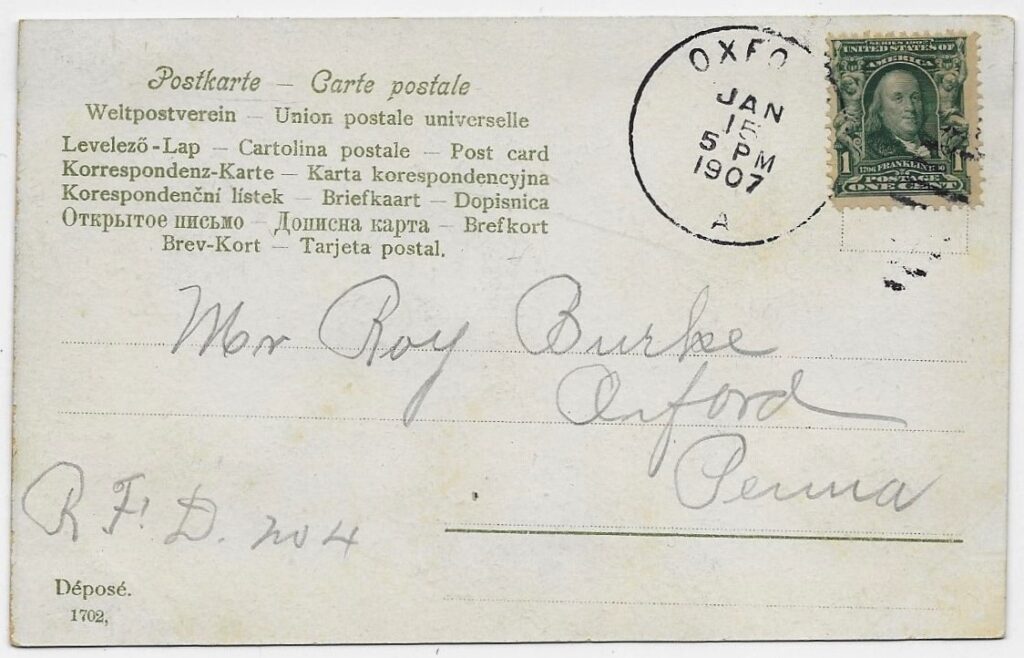 Postkarte – Carte postale
Weltpostverein – Union postale universelle
Levelező-Lap – Cartolina postale – Post card
Korrespondenz-Karte – Karta korespondencyjna
Korespondenční lístek – Briefkaart – Dopisnica
Открытое письмо – Дописна карта – Brefkort
Brev-Kort – Tarjeta postal.
OXFO
JAN
15
5 PM
1907
A
SERIES 1902
UNITED STATES OF
AMERICA
1 FRANKLIN 1
POSTAGE
ONE CENT
Mr Roy Burke
Oxford
Penna
R. F. D. no 4
Déposé.
1702,